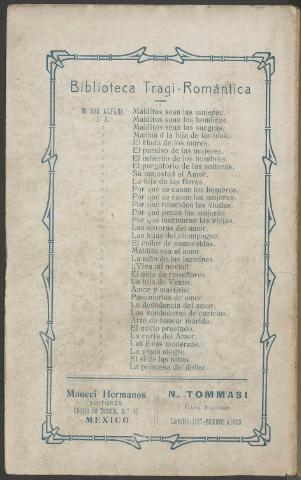 Biblioteca Tragi-Romántica
Malditas sean las mujeres.
Malditos sean los hombres.
Malditas sean las suegras.
Marina ó la hija de las olas.
El Hada de los mares.
El paraíso de las mujeres.
El infierno de los hombres.
El purgatorio de las solteras.
Su majestad el Amor.
La hija de las flores.
Por qué se casan los hombres.
Por qué se casan las mujeres.
Por qué reinciden las viudas.
Por qué pecan las mujeres.
Por qué murmuran las viejas.
Las obreras del amor.
Las hijas del champagne.
El collar de esmeraldas.
Maldito sea el amor.
La niña de los jazmines.
¡Viva mi novia!!
El nido de ruiseñores.
La hija de Venus.
Amor y martirio.
Pasionarias de amor.
La decadencia del amor.
Las vendedoras de caricias.
Arte de buscar marido.
El novio prestado.
La corte del Amor.
Las Evas modernas.
La viuda alegre.
El sí de las niñas.
La princesa del dollar.
Maucci Hermanos
EDITORES
MÉXICO
N. TOMMASI
CASA EDITORA
BUENOS AIRES